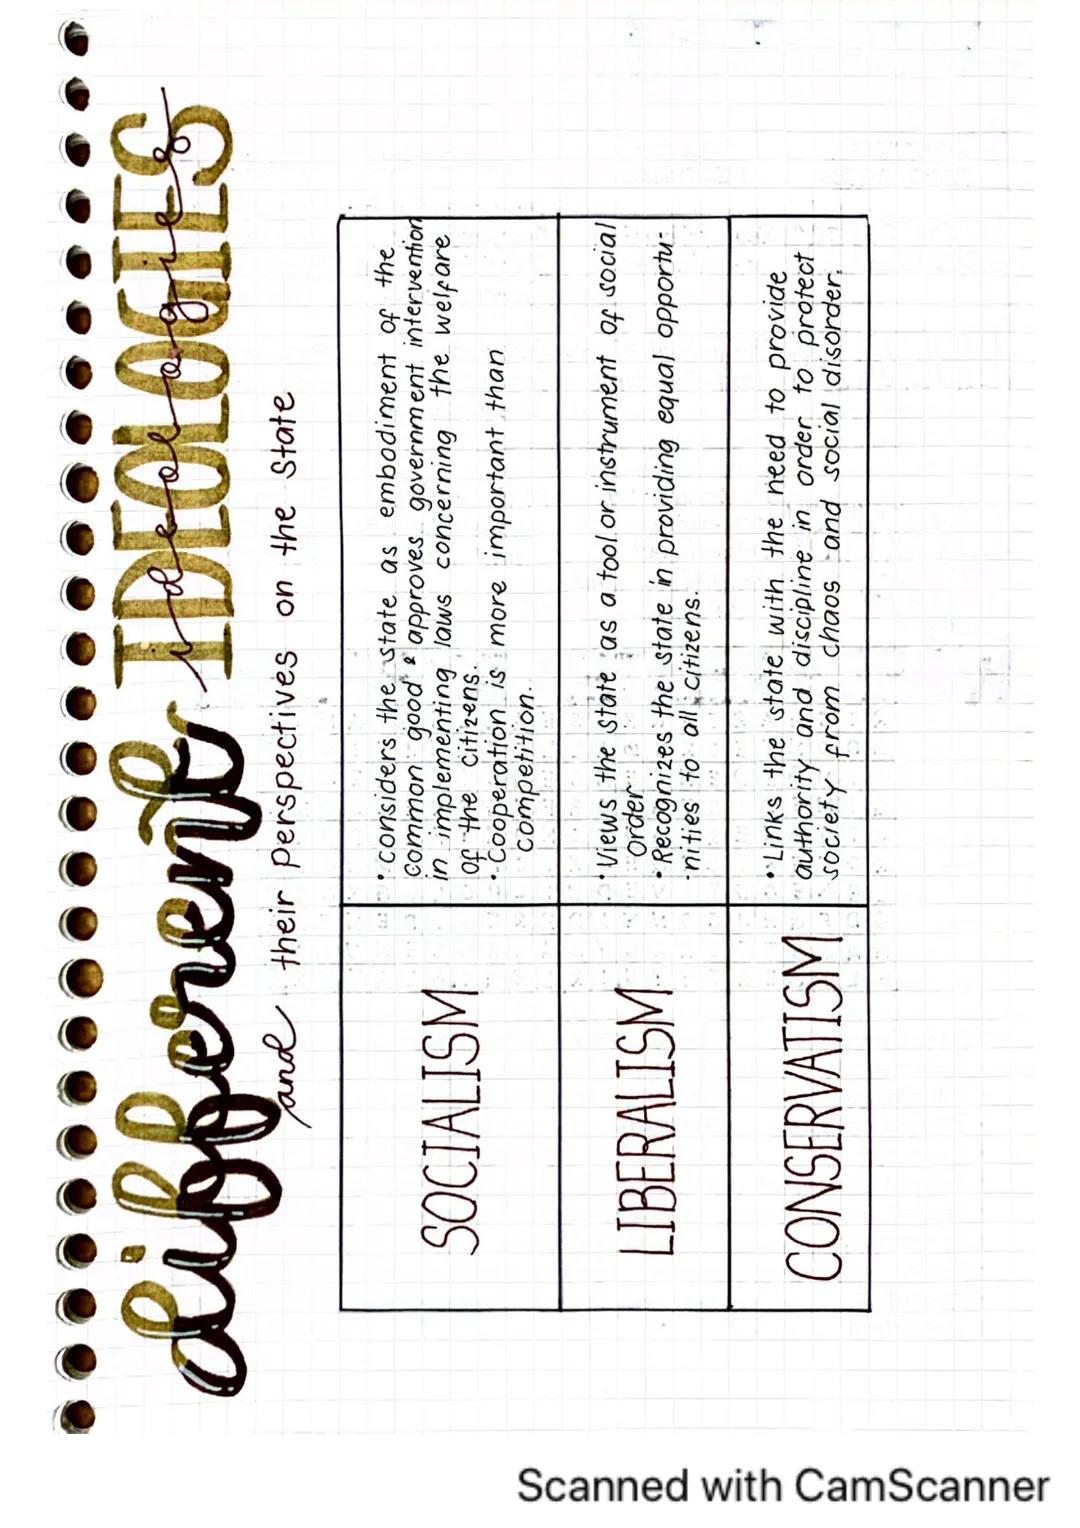 different IDEOLOGIES
ideologies
and their perspectives on the State
SOCIALISM
• considers the state as embodiment of the
common good & approves government intervention
in implementing laws concerning the welfare
of the citizens.
• Cooperation is more important than
competition.
LIBERALISM
• Views the state as a tool or instrument of social
order
• Recognizes the state in providing equal opportu-
-nities to all citizens.
CONSERVATISM
• Links the state with the need to provide
authority and discipline in order to protect
society from chaos and social disorder.
Scanned with CamScanner